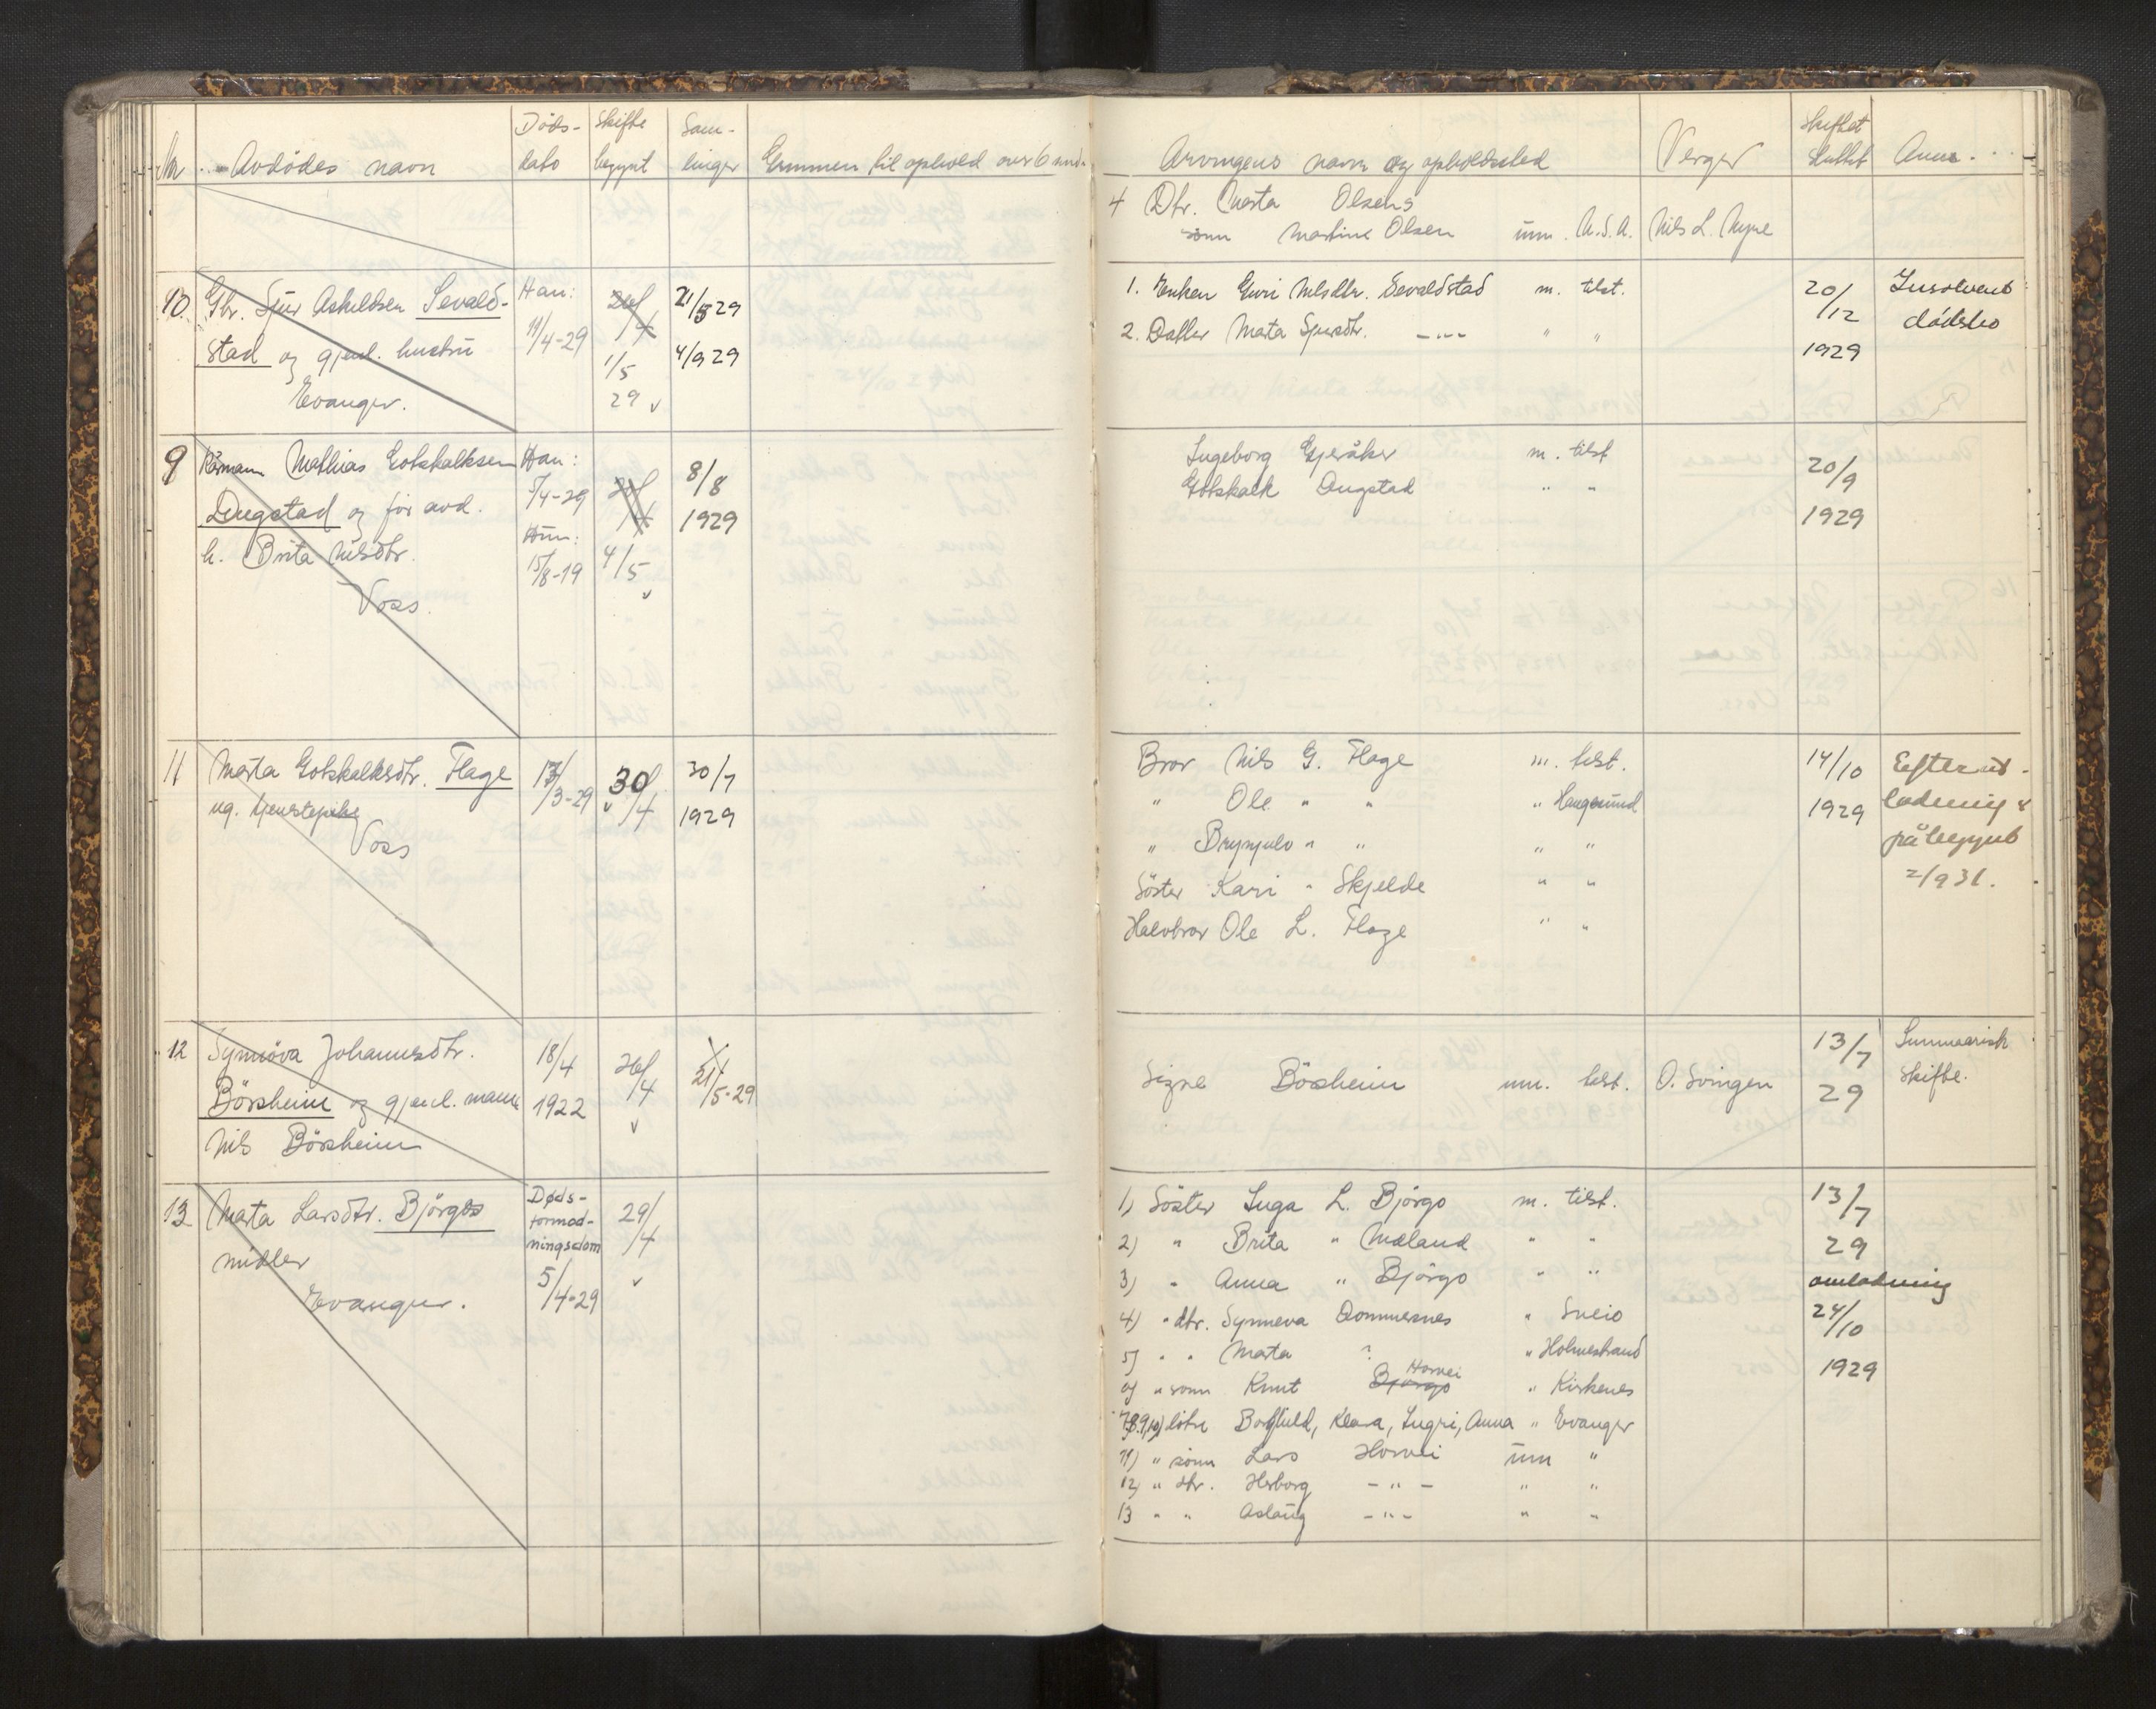 Nr Avdödes navn Døds- dato Skifte begynt Sam- linger Grunnen til ophold over 6 mndr
Arvingens navn og opholdssted Verger Skiftet sluttet Anm.
4 Dtr. Marta Olsens
sönn Martine Olsen um. U.S.A. Nils L. Nyre
10. Gbr. Sjur Askildsen Sevald-
stad og gjenl. hustru
Evanger.
Han:
11/4-29
26/4
1/5
29 v
21/5 29
4/9 29
1. Enken Guri Nilsdtr. Sevaldstad m. tilst.
2. Datter Marta Sjursdtr. -"- " "
20/12
1929
Insolvent
dödsbo
9 Kårmann Mathias Gotskalksen
Dugstad og før avd.
h. Brita Nilsdtr.
Voss.
Han:
7/4-29
Hun:
15/8-19
4/5
v
8/8
1929
Ingeborg Gjeråker m. tilst
Gotskalk Dugstad " "
20/9
1929
11 Marta Gotskalksdtr. Flage
ug. tjenestepike
Voss
13/3-29
30/4
v
30/7
1929
Bror Nils G. Flage m. tilst.
" Ole " " " Haugesund
" Brynjulv " " " "
Söster Kari " Skjelde " "
Halvbror Ole L. Flage " "
14/10
1929
Efterut-
lodning
påbegynt
2/9 31.
12 Synnöva Johannesdtr.
Börsheim og gjenl. mann
Nils Börsheim
18/4
1922
26/4
v
21/5-29
Signe Börsheim um. tilst. O. Svingen
13/7
29
Summarisk
skifte.
13 Marta Larsdtr. Björgos
midler
Evanger.
Døds-
formod-
ningsdom
5/4-29
29/4
v
1) Söster Inga L. Björgo m. tilst.
2) " Brita " Mæland " "
3) " Anna " Björgo " "
4) " dtr. Synneva Dommersnes " Sveio
5) " " Marta " " Holmestrand
6) " sönn Knut Björgo Horvei " Kirkenes
7,8,9,10) dötre Borghild, Klara, Ingri, Anna " Evanger
11) " sönn Lars Horvei um "
12) " dtr. Herborg -"- " "
13 " " Aslaug -"- " "
13/7
29
omlodning
24/10
1929